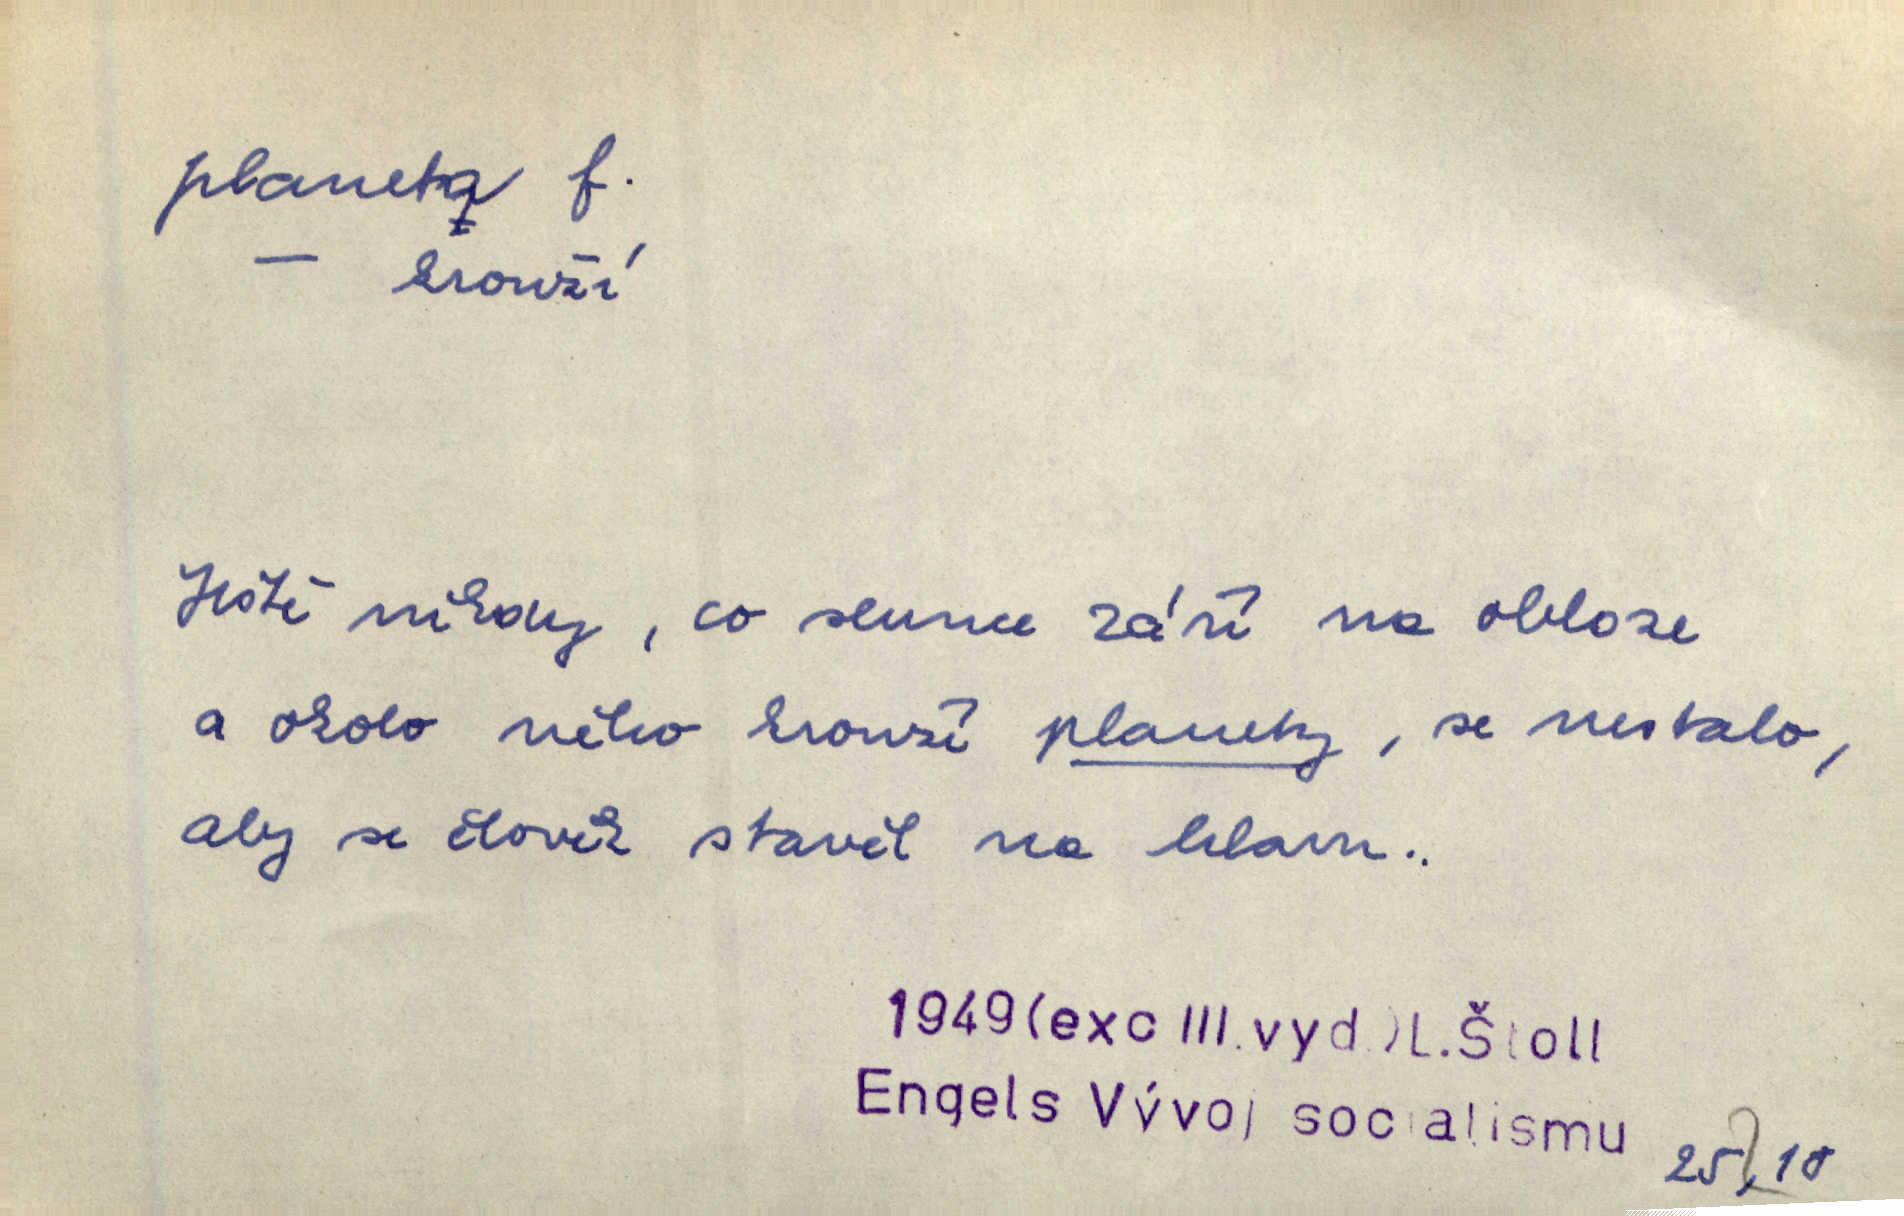 planeta f.
— krouží
Ještě nikdy, co slunce září na obloze
a okolo něho krouží planety, se nestalo,
aby se člověk stavěl na hlavu..
1949 (exc III. vyd.) L. Štoll
Engels Vývoj socialismu
25, 18